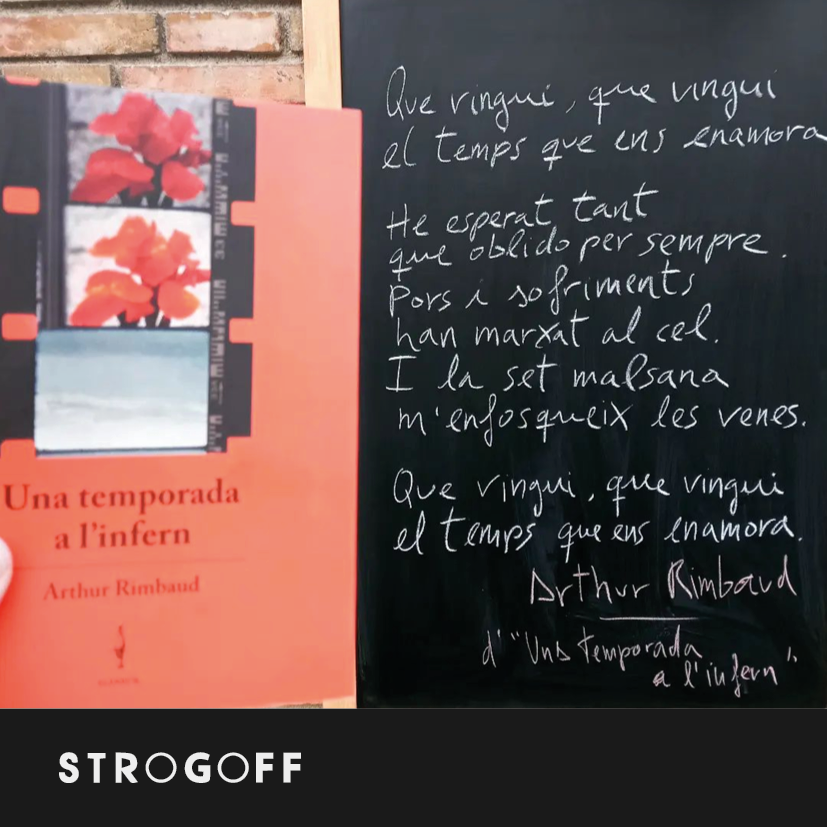 Una temporada
a l'infern
Arthur Rimbaud
Que vingui, que vingui
el temps que ens enamora
He esperat tant
que oblido per sempre.
Pors i sofriments
han marxat al cel.
I la set malsana
m'enfosqueix les venes.
Que vingui, que vingui
el temps que ens enamora.
Arthur Rimbaud
d' "Una temporada
a l'infern".
STROGOFF